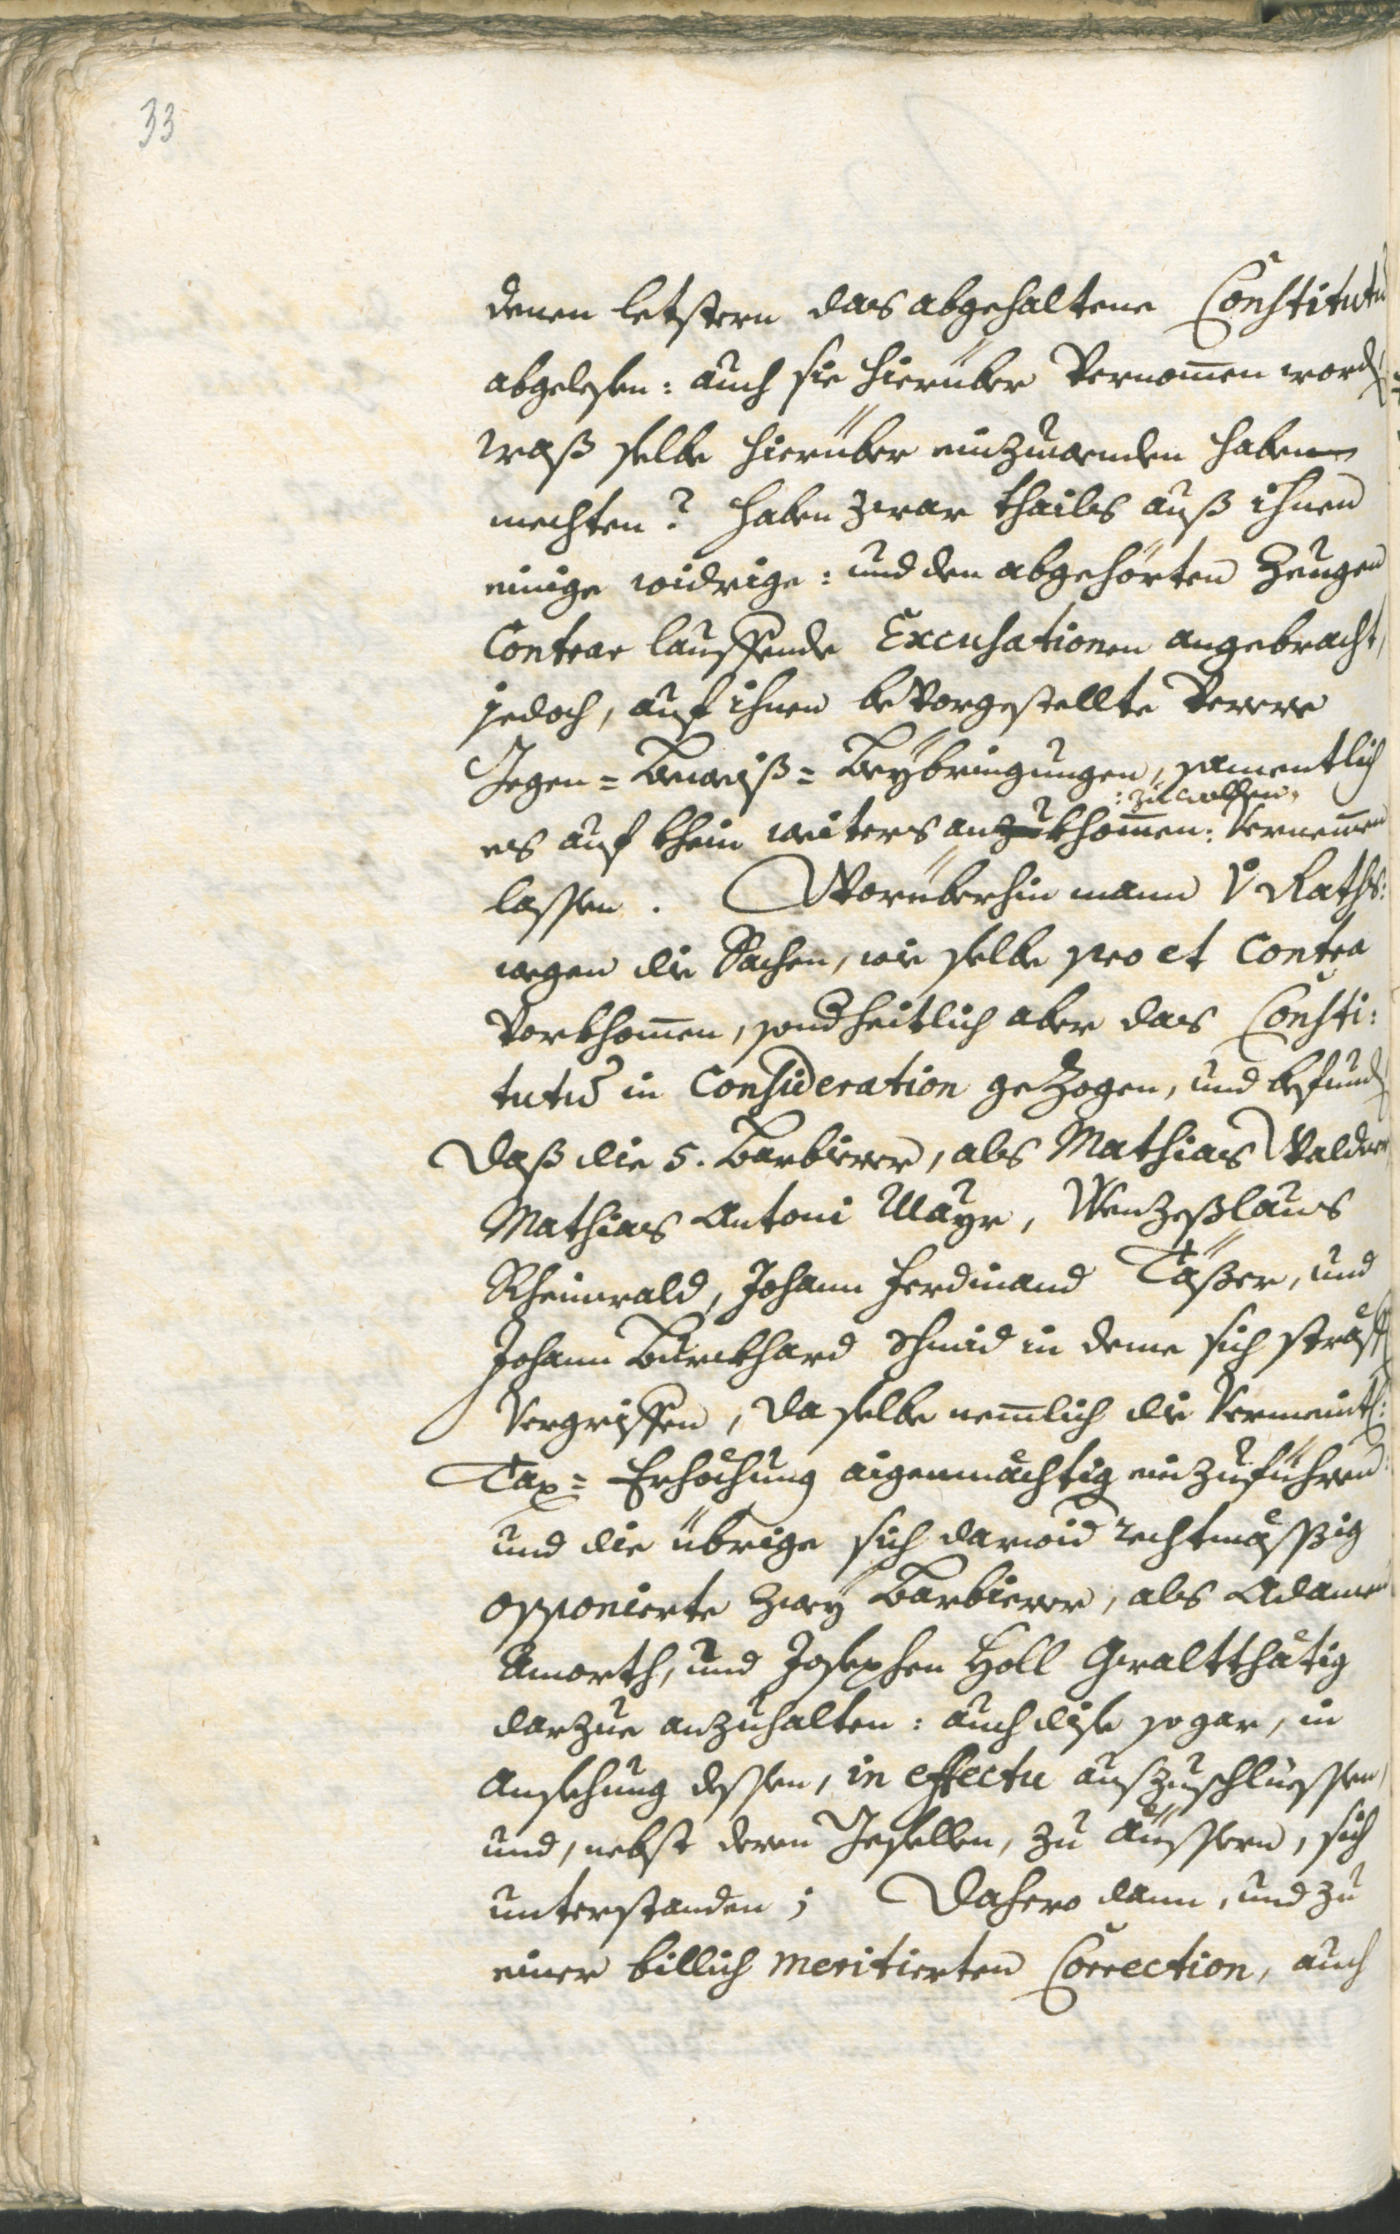 33
denen letstern das abgehaltene Constitutu
abgelesen: auch sie hierüber Vernom̄en word
waß selbe hierüber einzuwenden haben
mechten? haben zwar thails auß ihnen
einige widrige: und den abgehörten Zeugen
Contrar lauffende Excusationen angebracht,
jedoch, auf ihnen bevorgestellte Verere
Gegen=Beweiß=Beÿbringungen, samentlich
:zu wollen,
es auf khein weiters anzukhom̄en: Vernem̄en
lassen. Worüberhin mann V Raths:
wegen die Sachen, wie selbe pro et Contra
Vorkhom̄en, sondheitlich aber das Consti:
tutũ in Consideration gezogen, und befund
daß die 5. Barbierer, als Mathias Walder
Mathias Antoni Mayr, Wenzeßlaus
Rheinwald, Johann Ferdinand Täßer, und
Johann Burckhard Schmid in deme sich sträffl
Vergriffen, da selbe nem̄lich die Vermeintl:
Tax=Erhöchung aigenmächtig einzuführen:
und die übrige sich darwid rechtmässig
opponierte zweÿ Barbierer, als Adamen
Amorth, und Josephen Holl Gwaltthätig
darzue anzuhalten: auch dise sogar, in
Ansehung dessen, in effectu auszuschluessen,
und, nebst deren Gesellen, zu äussern, sich
unterstanden; Dahero dann, und zu
einer billich meritierten Correction, auch